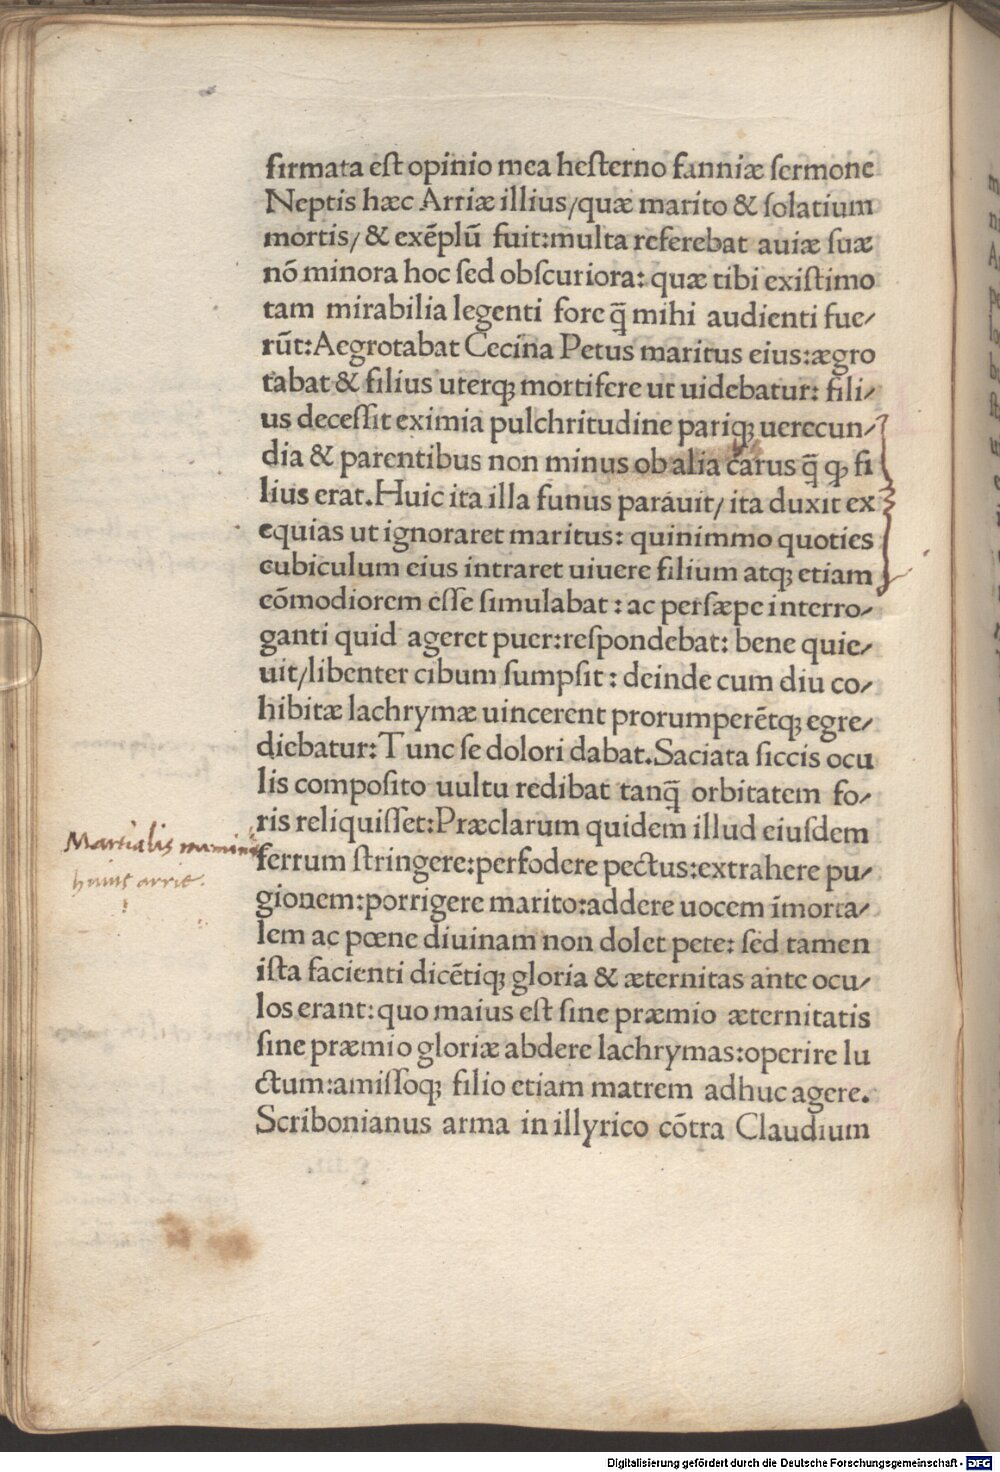 firmata est opinio mea hesterno fanniæ sermone
Neptis hæc Arriæ illius/quæ marito & solatium
mortis/ & exēplū fuit:multa referebat auiæ suæ
nō minora hoc sed obscuriora: quæ tibi existimo
tam mirabilia legenti fore q̄ mihi audienti fue/
rūt:Aegrotabat Cecina Petus maritus eius:ægro
tabat & filius uterqꝫ mortifere ut uidebatur: fili/
us decessit eximia pulchritudine pariqꝫ uerecun/
dia & parentibus non minus ob alia carus q̄ ꝙ fi
lius erat.Huic ita illa funus parauit/ ita duxit ex
equias ut ignoraret maritus: quinimmo quoties
cubiculum eius intraret uiuere filium atqꝫ etiam
cōmodiorem esse simulabat : ac persæpe interro/
ganti quid ageret puer:respondebat: bene quie/
uit/libenter cibum sumpsit : deinde cum diu co/
hibitæ lachrymæ uincerent prorumperētqꝫ egre/
diebatur:Tunc se dolori dabat.Saciata siccis ocu
lis composito uultu redibat tanq̄ orbitatem fo/
ris reliquisset:Præclarum quidem illud eiusdem
ferrum stringere:perfodere pectus:extrahere pu/
gionem:porrigere marito:addere uocem īmorta/
lem ac pœne diuinam non dolet pete: sed tamen
ista facienti dicētiqꝫ gloria & æternitas ante ocu/
los erant:quo maius est sine præmio æternitatis
sine præmio gloriæ abdere lachrymas:operire lu
ctum:amissoqꝫ filio etiam matrem adhuc agere.
Scribonianus arma in illyrico cōtra Claudium
Martialis
huius arrie.
Digitalisierung gefördert durch die Deutsche Forschungsgemeinschaft - DFG